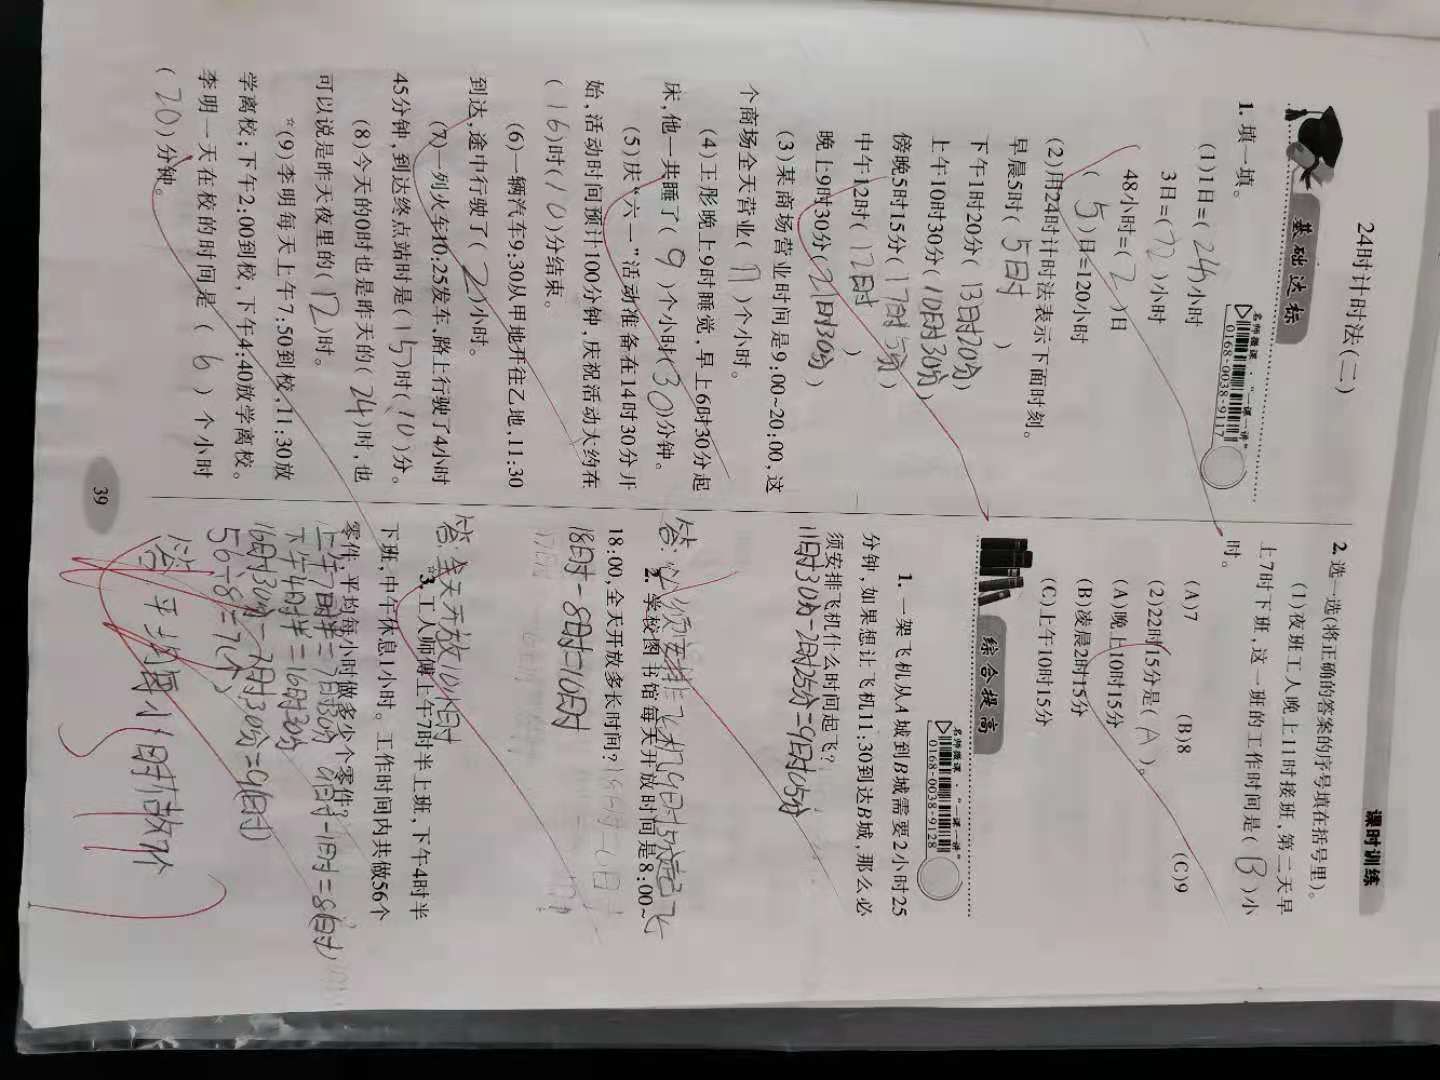 课时训练
24时计时法(二)
基础达标
名师微课·“一课一讲”
0168-0038-9117
1. 填一填。
(1)1日=(24)小时
3日=(72)小时
48小时=(2)日
(5)日=120小时
(2)用24时计时法表示下面时刻。
早晨5时(5时)
下午1时20分(13时20分)
上午10时30分(10时30分)
傍晚5时15分(17时5分)
中午12时(12时)
晚上9时30分(21时30分)
(3)某商场营业时间是9:00~20:00,这
个商场全天营业(11)个小时。
(4)王彤晚上9时睡觉,早上6时30分起
床,他一共睡了(9)个小时(30)分钟。
(5)庆“六一”活动准备在14时30分开
始,活动时间预计100分钟,庆祝活动大约在
(16)时(10)分结束。
(6)一辆汽车9:30从甲地开往乙地,11:30
到达,途中行驶了(2)小时。
(7)一列火车10:25发车,路上行驶了4小时
45分钟,到达终点站时是(15)时(10)分。
(8)今天的0时也是昨天的(24)时,也
可以说是昨天夜里的(12)时。
☆(9)李明每天上午7:50到校,11:30放
学离校;下午2:00到校,下午4:40放学离校。
李明一天在校的时间是(6)个小时
(20)分钟。
39
2. 选一选(将正确的答案的序号填在括号里)。
(1)夜班工人晚上11时接班,第二天早
上7时下班,这一班的工作时间是(B)小
时。
(A)7 (B)8 (C)9
(2)22时15分是(A)。
(A)晚上10时15分
(B)凌晨2时15分
(C)上午10时15分
综合提高
名师微课·“一课一讲”
0168-0038-9128
1. 一架飞机从A城到B城需要2小时25
分钟,如果想让飞机11:30到达B城,那么必
须安排飞机什么时间起飞?
11时30分-2时25分=9时05分
答:必须安排飞机9时5分起飞
2. 学校图书馆每天开放时间是8:00~
18:00,全天开放多长时间?
18时-8时=10时
答:全天开放10小时
☆3. 工人师傅上午7时半上班,下午4时半
下班,中午休息1小时。工作时间内共做56个
零件,平均每小时做多少个零件?
上午7时半=7时30分 9时-1时=8(时)
下午4时半=16时30分
16时30分-7时30分=9(时)
56÷8=7(个)
答:平均每小时做7个